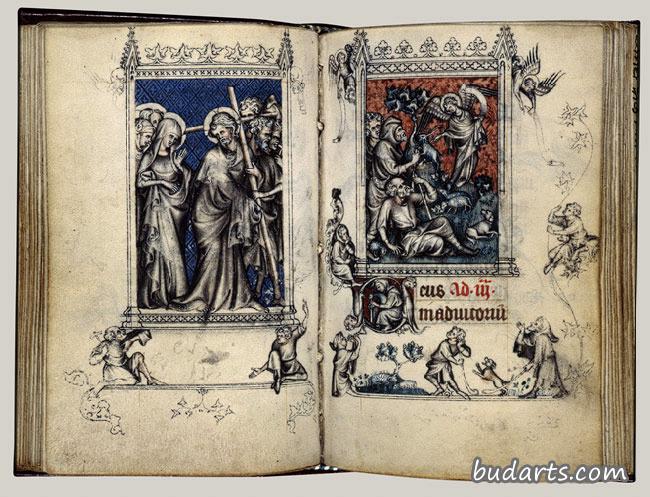 Deus Ad .iij.
in adiutoriū
budarts.com